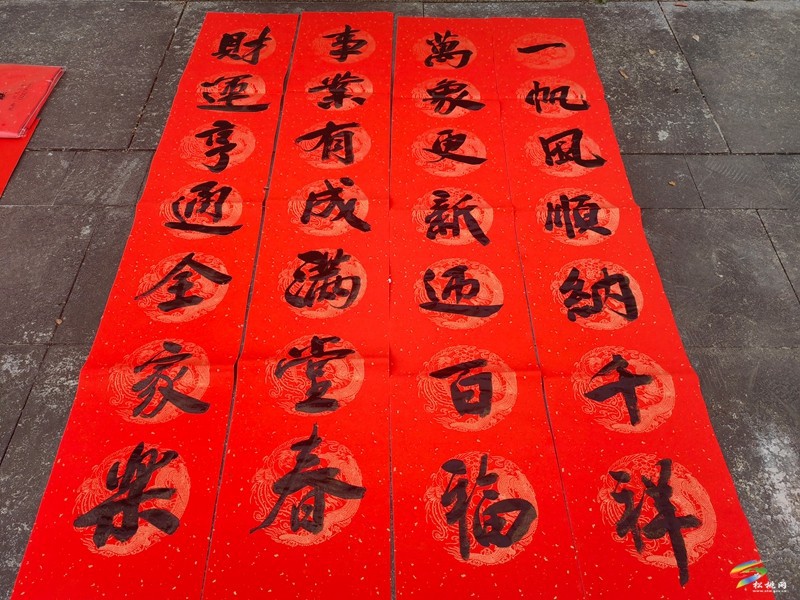 一帆風順納千祥
萬象更新迎百福
事業有成滿堂春
財運亨通全家樂
松桃网